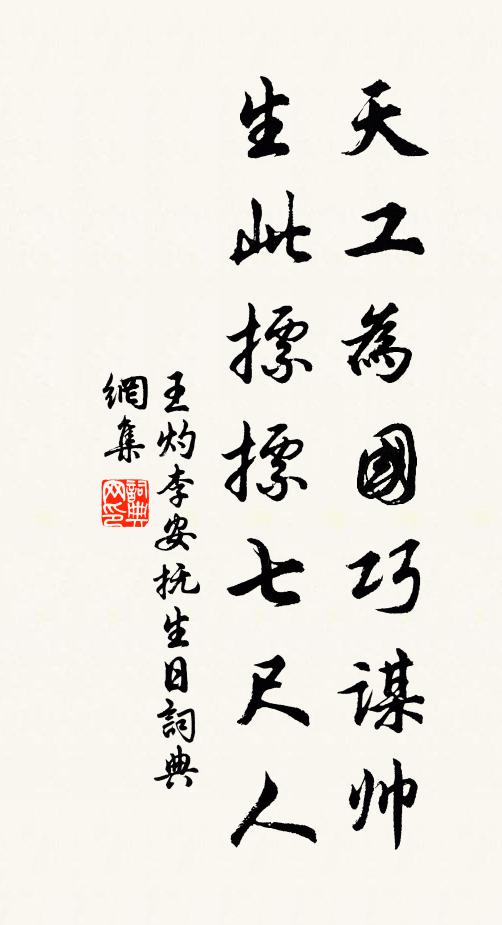 天工為國巧謀帅
生此摽摽七尺人
王灼李安抚生日詞典
網集
詞典網印